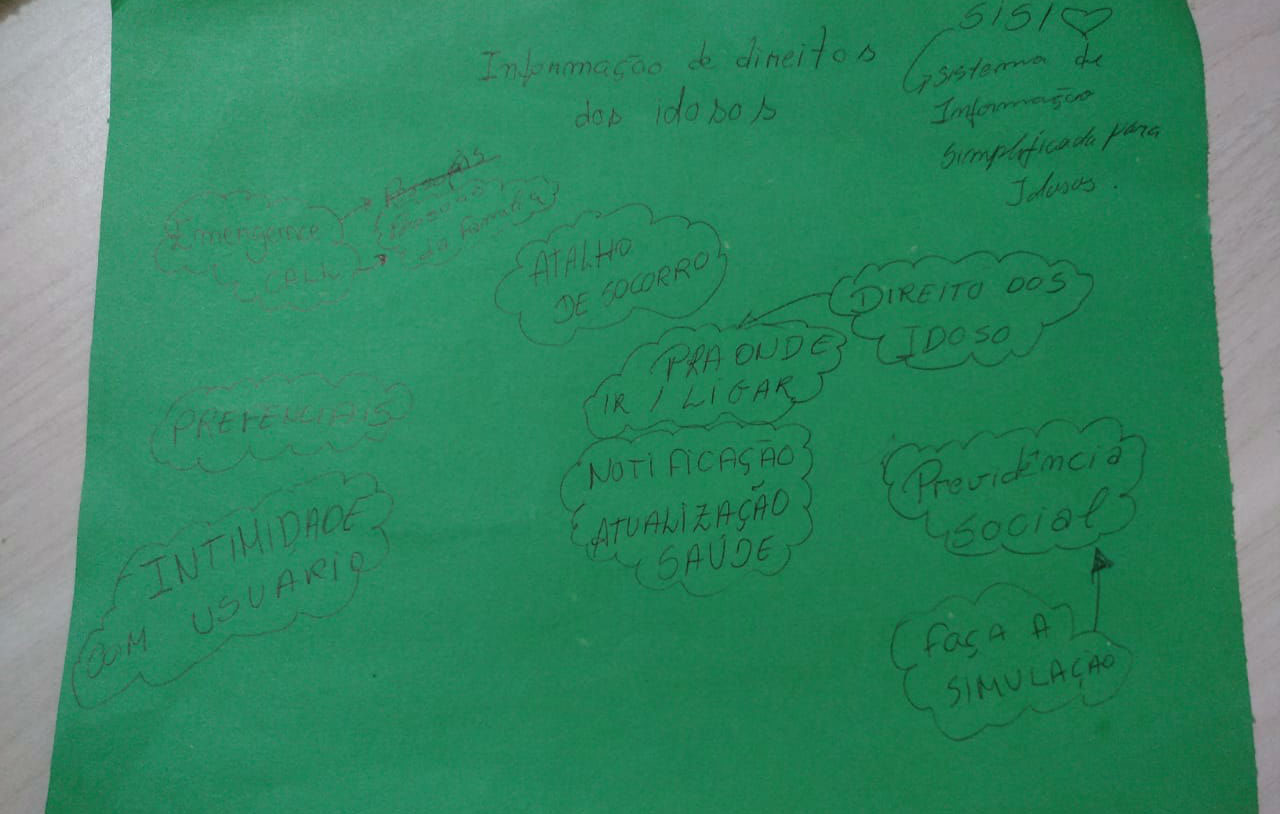 Informação de direitos
dos idosos
SISI
sistema de
Informação
simplificada para
Idosos.
Emergence
CALL
Pessoas
da família
ATALHO
DE SOCORRO
DIREITO DOS
IDOSO
PRA ONDE
IR / LIGAR
PREFENCIAIS
NOTIFICAÇÃO
ATUALIZAÇÃO
SAÚDE
Previdência
Social
INTIMIDADE
COM USUARIO
FAÇA A
SIMULAÇÃO